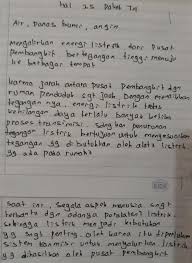 hal 25 Paket 7a
Air, Panas bumi, angin
Mengalirkan energi listrik dari Pusat
Pembangkit bertegangan tinggi menuju
ke berbagai tempat
karena jarak antara pusat Pembangkit dgn
rumah penduduk sgt jauh. Dengan menaikkan
tegangan nya, energi listrik tdk
kehilangan daya terlalu banyak ketika
proses transmisi. Sedangkan penurunan
tegangan listrik bertujuan untuk menyesuaikan
tegangan yg di butuhkan oleh alat listrik
yg ada pada rumah
Saat ini, segala aspek manusia sngt
terbantu dgn adanya peralatan listrik
sehingga listrik men jadi kebutuhan
yg sngt penting oleh karea itu diperlukan
sistem transmisi untuk menyalurkan listrik
yg dihasilkan oleh pusat pembangkit